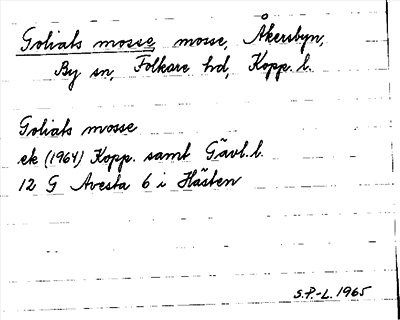 Goliats mosse, mosse, Åkersbyn,
By sn, Folkare hd, Kopp. l.
Goliats mosse
ek (1964) Kopp. samt Gävl. l.
12 G Avesta 6 i Hästen
S.P.-L. 1965